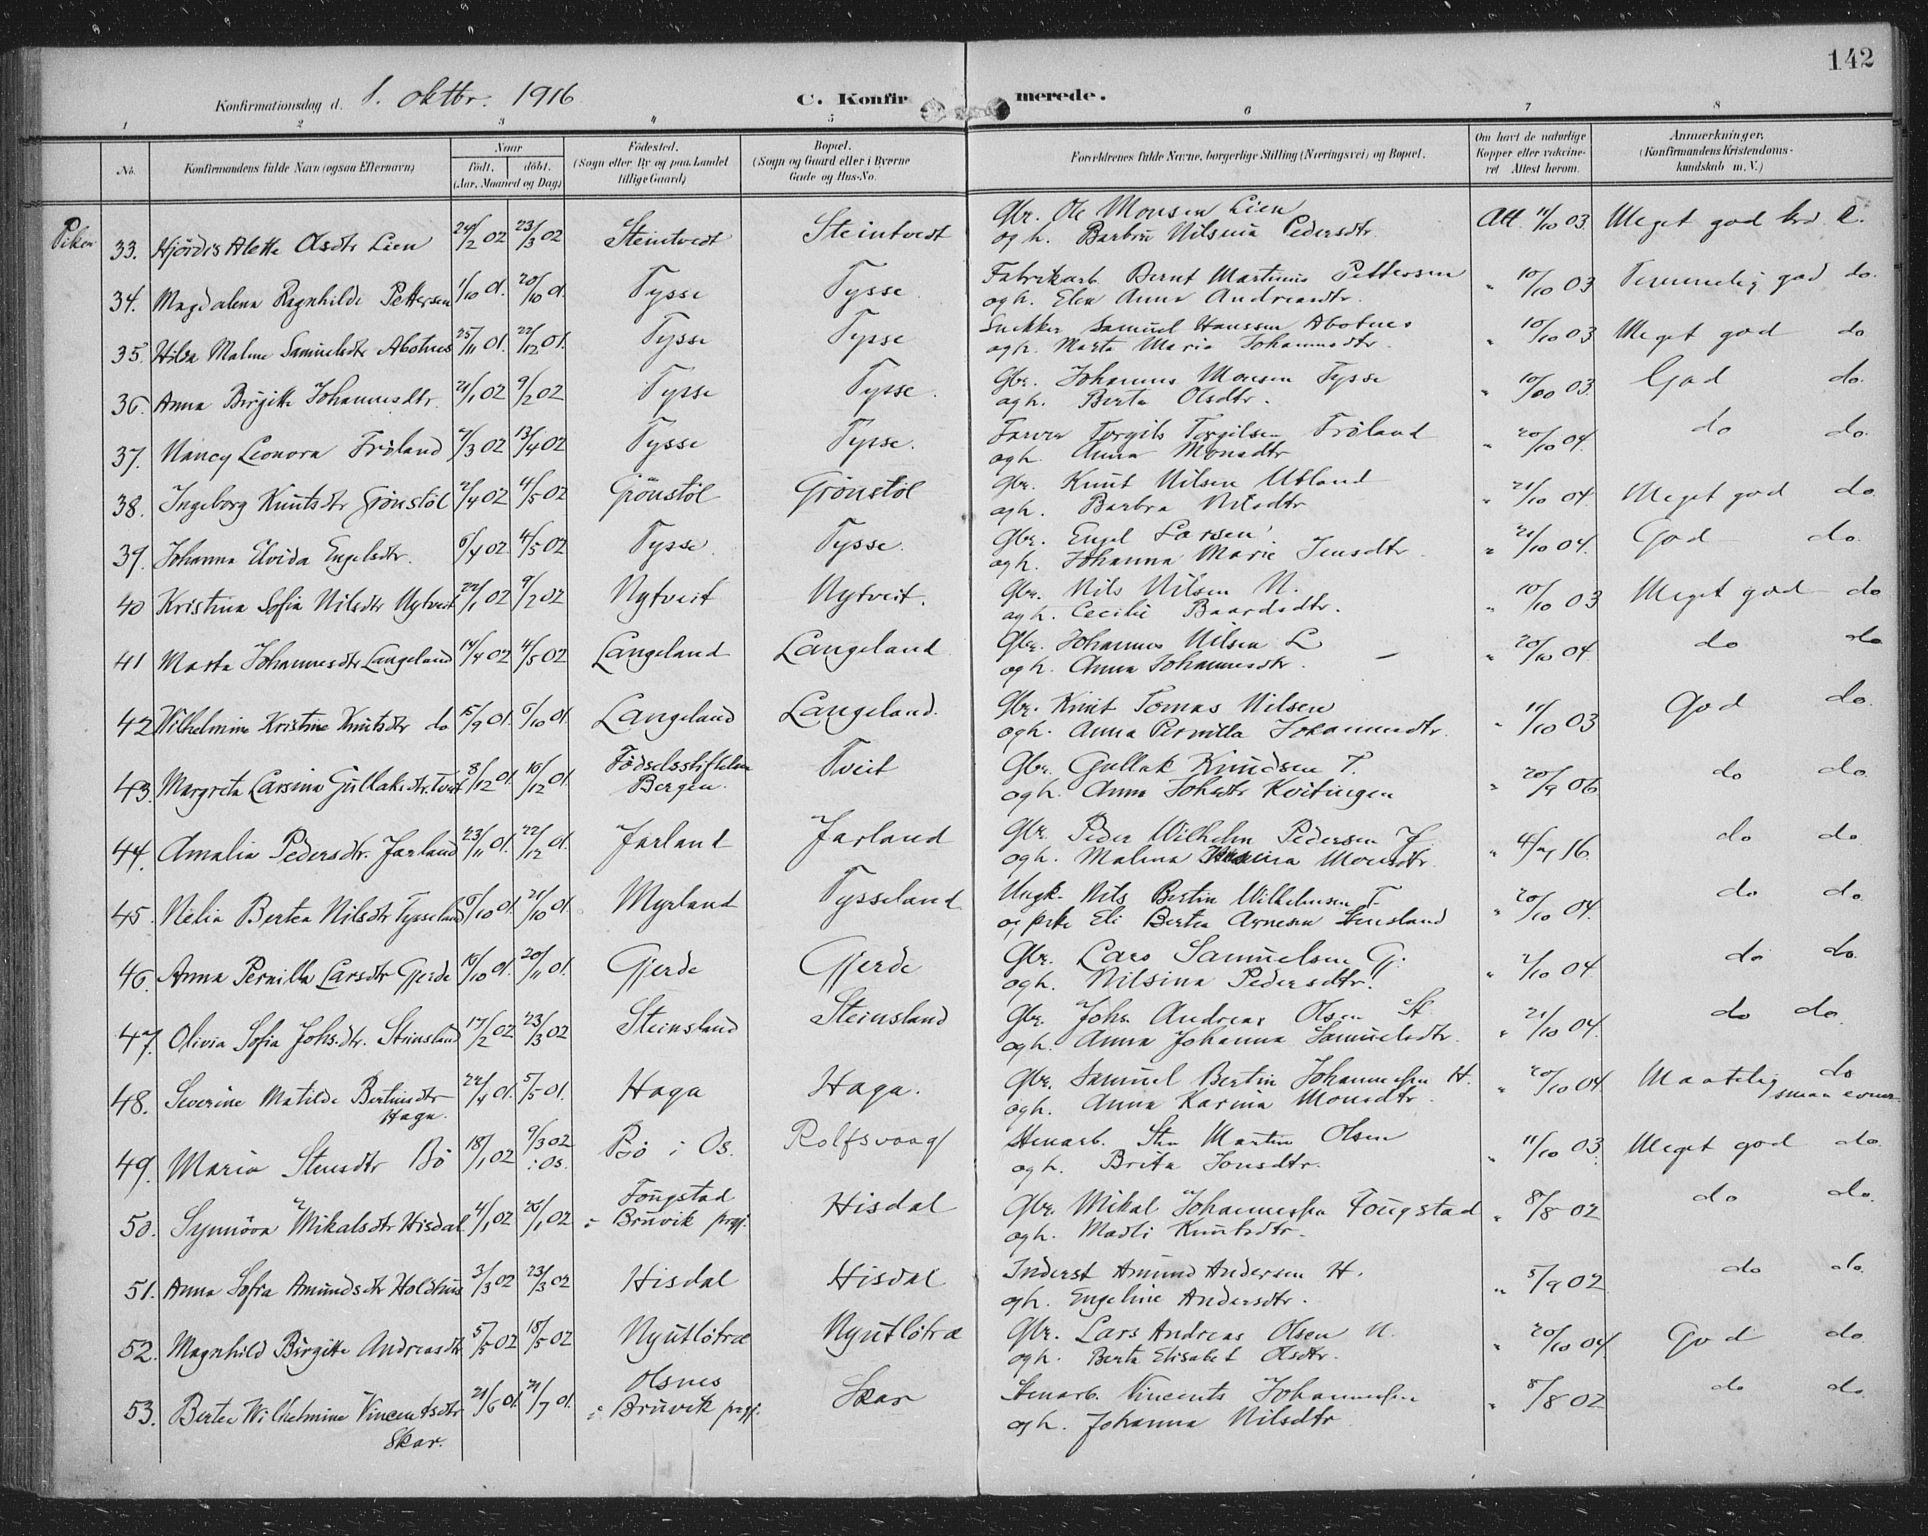 142
Konfirmationsdag d. 1. oktbr. 1916
C. Konfirmerede.
1 2 3 4 5 6 7 8
No. Konfirmandens fulde Navn (ogsaa Efternavn)
Naar født, døbt. (Aar, Maaned og Dag)
Fødested. (Sogn eller By og paa Landet tillige Gaard)
Bopæl. (Sogn og Gaard eller i Byerne Gade og Hus-No.
Forældrenes fulde Navne, borgerlige Stilling (Næringsvei) og Bopæl.
Om havt de naturlige Kopper eller vakcineret Attest herom.
Anmærkninger. (Konfirmandens Kristendomskundskab m. V.)
Piker
33. Hjørdis Alette Olsdtr Lien 24/2 02 23/3 02 Steintvedt Steintvedt Gbr. Ole Monsen Lien Att. 11/10 03 Meget god krd. k.
og h. Barbra Nilsina Pedersdtr.
34. Magdalena Ragnhilde Pettersen 1/10 01. 20/10 01. Tysse Tysse Fabrikarb. Bernt Martinus Pettersen " 10/10 03 Temmelig god do.
og h. Elen Anna Andreasdtr.
35. Hilda Malme Samuelsdtr Abotnes 25/11 01. 22/12 01. Tysse Tysse Snekker Samuel Hanssen Abotnes " 10/10 03 Meget god do
og h. Marta Maria Johannesdtr.
36. Anna Birgitte Johannesdtr. 21/1 02 9/2 02 Tysse Tysse. Gbr. Johannes Monsen Tysse " 10/00 03. God do.
og h. Berta Olsdtr.
37. Nancy Leonora Frøland 2/3 02 13/4 02 Tysse Tysse. Farver Torgils Torgilsen Frøland " 20/10 04. do do.
og h. Anna Monsdtr
38. Ingeborg Knutsdtr Grönstöl 2/4 02 4/5 02 Grönstöl Grönstöl Gbr. Knut Nilsen Utland " 21/10 04 Meget god do.
og h. Barbra Nilsdtr
39. Johanna Elvida Engelsdtr. 6/4 02. 4/5 02 Tysse Tysse. Gbr. Engel Larsen. " 21/10 04. God do.
og h. Johanna Marie Jensdtr.
40 Kristina Sofia Nilsdtr Nytveit 22/1 02 9/2 02 Nytveit Nytveit. Gbr. Nils Nilsen N. " 10/10 03 Meget god do
og h. Cecilie Baardsdtr.
41 Marta Johannesdtr Langeland 14/4 02 4/5 02 Langeland Langeland Gbr. Johannes Nilsen L " 20/10 04. do do
og h. Anna Johannesdtr. –
42 Wilhelmine Kristine Knutsdtr do 5/9 01. 6/10 01. Langeland Langeland. Gbr. Knut Tomas Nilsen " 11/10 03 God do.
og h. Anna Pernilla Johannesdtr.
43. Margreta Larsina Gullaksdtr. Tveit 8/12 01. 16/12 01. Fødselsstiftelsen Bergen. Tveit Gbr. Gullak Knudsen T. " 20/9 06 do do.
og h. Anna Johsdtr Kvitingen
44. Amalia Pedersdtr. Jarland 23/11 01. 22/12 01. Jarland Jarland Gbr. Peder Wilhelm Pedersen J. " 16. do do
og h. Malina Monsdtr.
45. Nelia Bertea Nilsdtr Tysseland 6/10 01. 21/10 01. Myrland Tysseland Ungk. Nils Bertin Wilhelmsen T. " 20/10 04. do do.
og pike Eli Bertea Arnesen Stensland
46. Anna Pernilla Larsdtr Gjerde 10/10 01. 20/11 01. Gjerde Gjerde Gbr. Lars Samuelsen G. " 2/10 04 do do.
og h. Nilsina Pedersdtr.
47. Olivia Sofia Johs.dtr. Steinsland 17/2 02 23/3 02 Steinsland Steinsland Gbr. Johs Andreas Olsen St " 21/10 04. do do.
og h. Anna Johanna Samuelsdtr.
48. Severine Matilde Bertinsdtr Haga. 22/4 01. 5/5 01. Haga Haga. Gbr. Samuel Bertin Johannessen H. " 20/10 04 Maatelig do
og h. Anna Karina Monsdtr. smaa evner
49. Maria Stensdtr Bö 18/1 02 9/3 02 i Os. Bö i Os. Rolfsvaag Stenarb. Sten Martin Olsen " 11/10 03. Meget god do.
og h. Brita Jonsdtr.
50. Synnöva Mikalsdtr Hisdal 4/1 02 26/1 02 Fougstad i Bruvik prgj. Hisdal Gbr. Mikal Johannessen Fougstad " 8/8 02 do do.
og h. Madli Knutsdtr.
51. Anna Sofia Amundsdtr Holdhus 3/3 02 23/3 02 Hisdal Hisdal Inderst Amund Andersen H. " 5/9 02 do do.
og h. Engeline Andersdtr.
52. Magnhild Birgitte Andreasdtr 5/5 02 18/5 02 Nyutlötræ Nyutlötræ Gbr. Lars Andreas Olsen N. " 20/10 04. God do.
og h. Berta Elisabet Olsdtr.
53. Bertea Wilhelmine Vincentsdtr Skar. 21/6 01. 21/7 01. Olsnes i Bruvik prgj. Skar Stenarb. Vincents Johannessen " 8/8 02 do do.
og h. Johanna Nilsdtr